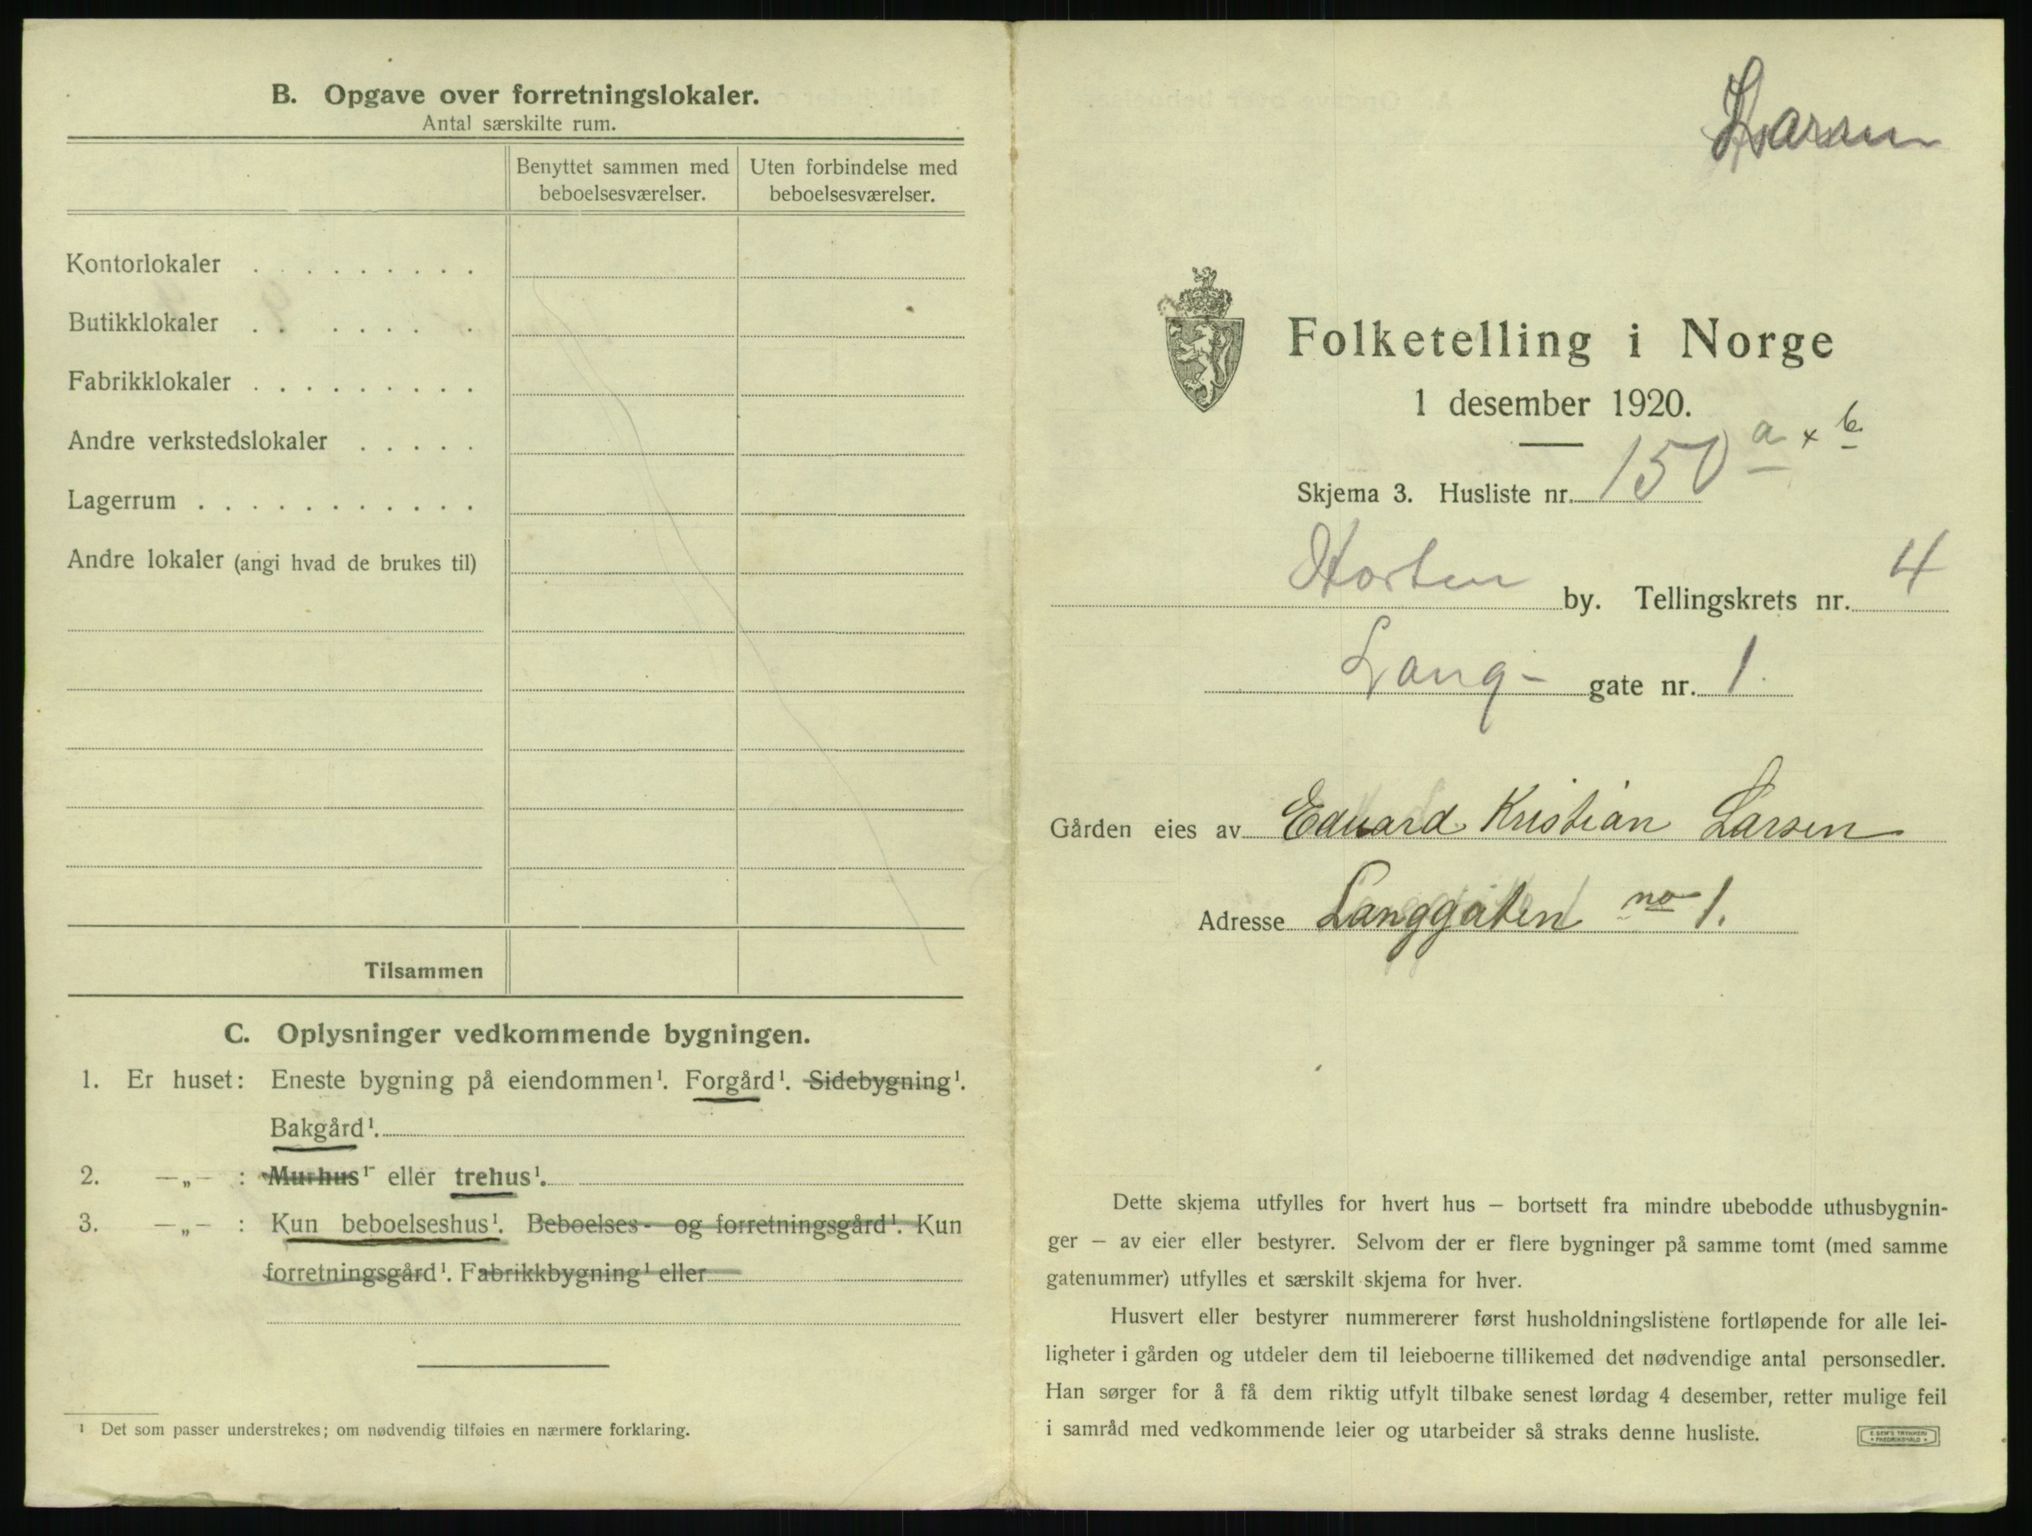 B. Opgave over forretningslokaler.
Antal særskilte rum.
Benyttet sammen med beboelsesværelser.
Uten forbindelse med beboelsesværelser.
Kontorlokaler . . . . . . . . .
Butikklokaler . . . . . . . .
Fabrikklokaler . . . . . . . . .
Andre verkstedslokaler . . . . .
Lagerrum . . . . . . . . . . .
Andre lokaler (angi hvad de brukes til)
Tilsammen
C. Oplysninger vedkommende bygningen.
1. Er huset: Eneste bygning på eiendommen¹. Forgård¹. Sidebygning¹.
Bakgård¹.
2. —„— : Murhus¹ eller trehus¹.
3. —„— : Kun beboelseshus¹. Beboelses- og forretningsgård¹. Kun
forretningsgård¹. Fabrikkbygning¹ eller
¹ Det som passer understrekes; om nødvendig tilføies en nærmere forklaring.
Larsen
Folketelling i Norge
1 desember 1920.
Skjema 3. Husliste nr. 150 a + b
Horten by. Tellingskrets nr. 4
Lang- gate nr. 1.
Gården eies av Eduard Kristian Larsen
Adresse Langgaten no 1.
Dette skjema utfylles for hvert hus – bortsett fra mindre ubebodde uthusbygnin-
ger – av eier eller bestyrer. Selvom der er flere bygninger på samme tomt (med samme
gatenummer) utfylles et særskilt skjema for hver.
Husvert eller bestyrer nummererer først husholdningslistene fortløpende for alle lei-
ligheter i gården og utdeler dem til leieboerne tillikemed det nødvendige antal personsedler.
Han sørger for å få dem riktig utfylt tilbake senest lørdag 4 desember, retter mulige feil
i samråd med vedkommende leier og utarbeider så straks denne husliste.
E. SEM'S TRYKKERI
FREDRIKSHALD